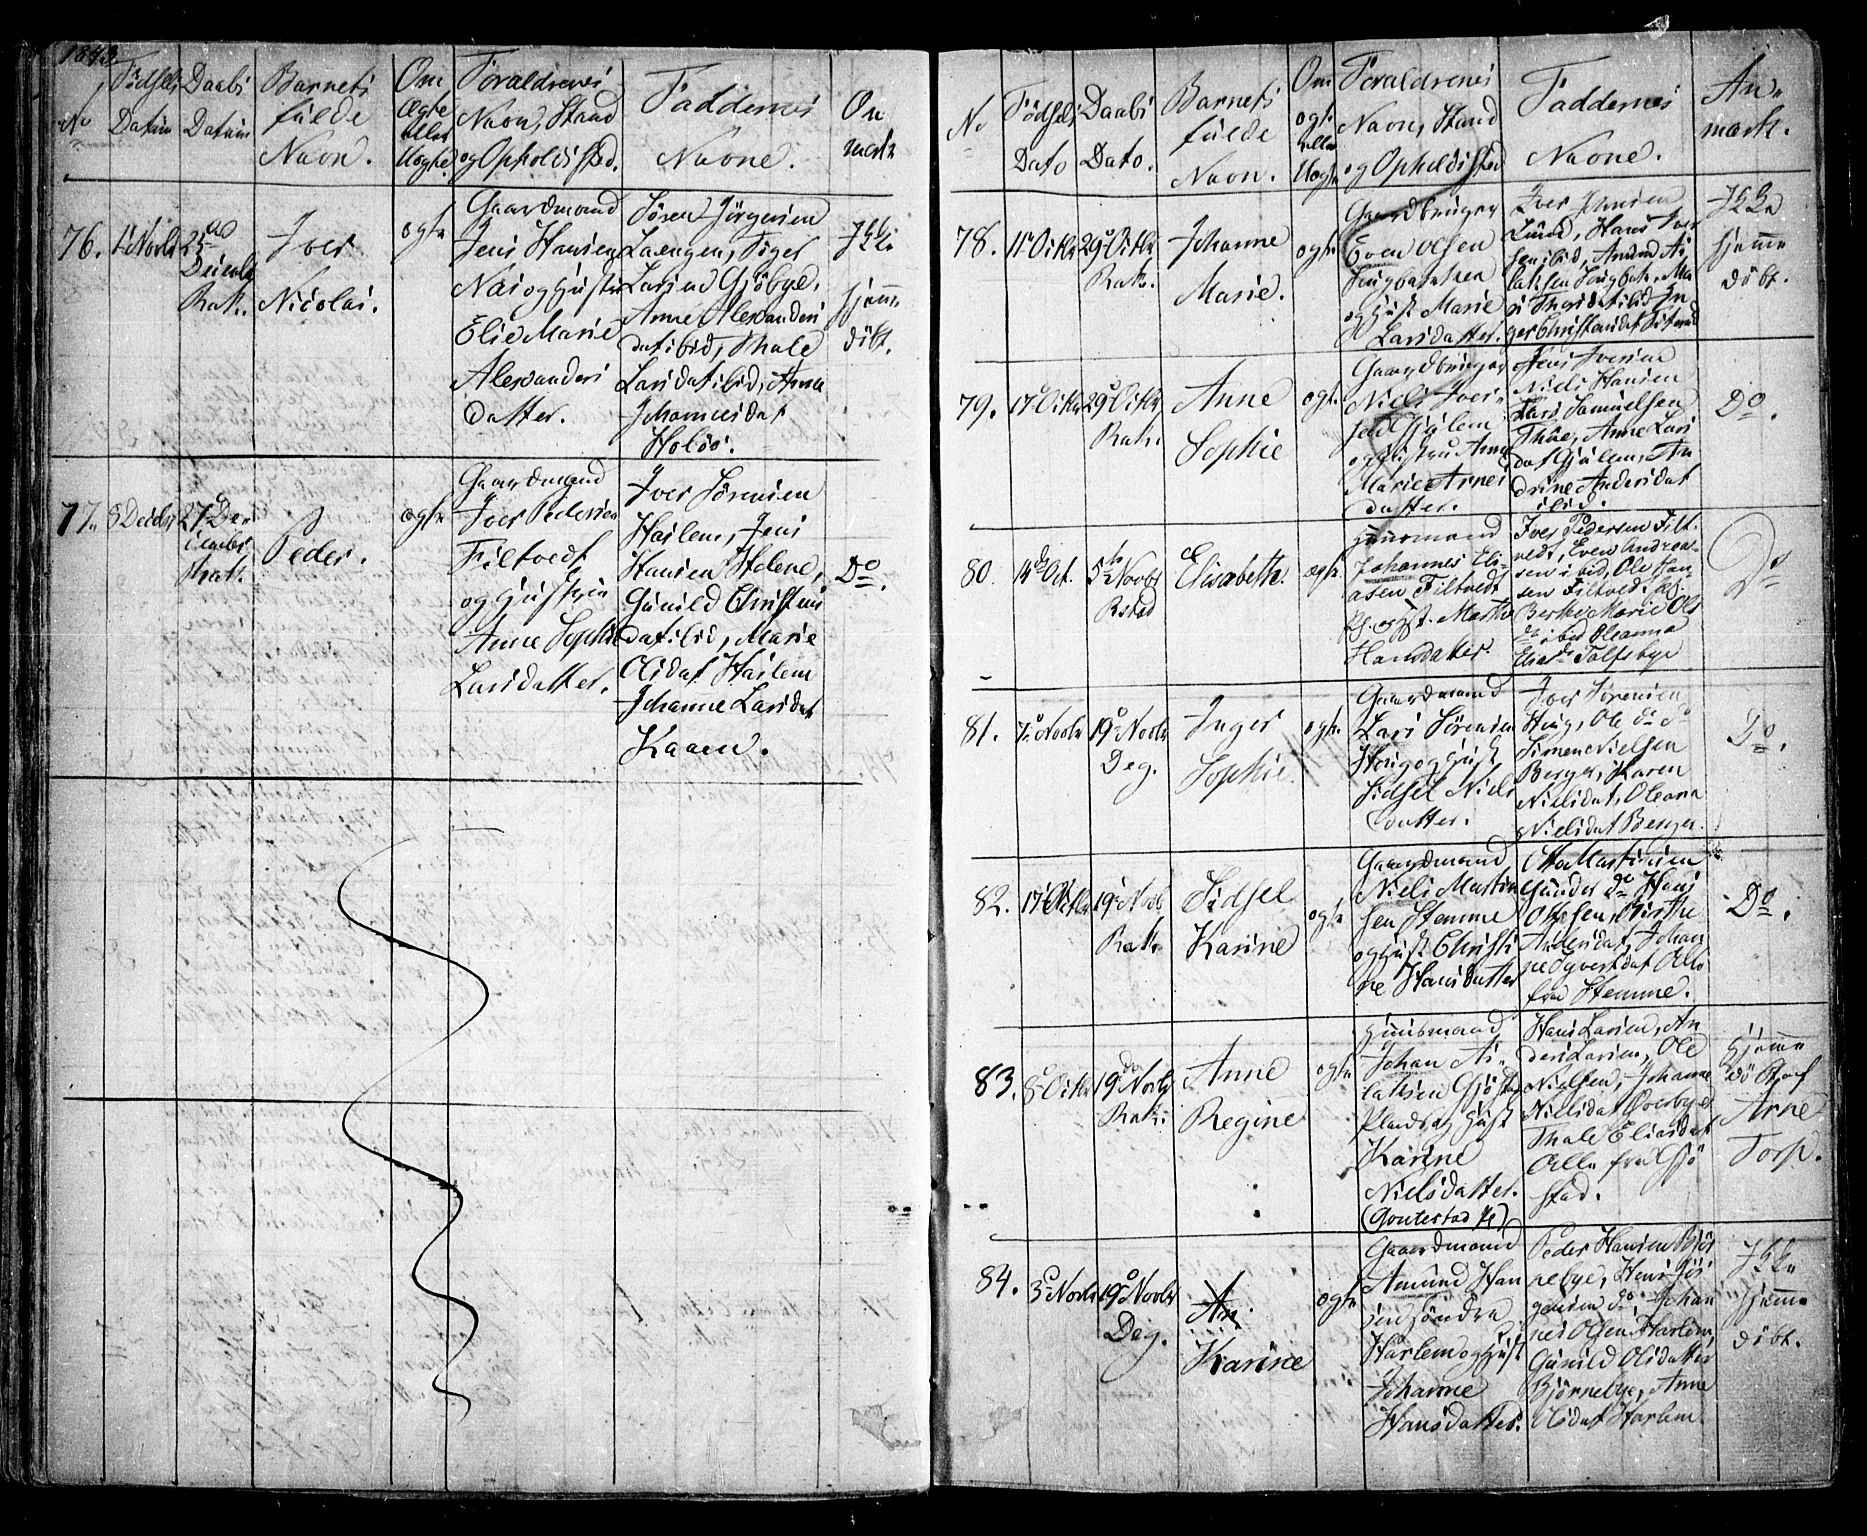 1843.
No
Fødsels
Datum
Daabs
Datum
Barnets
fulde
Navn.
Om
ægte
eller
Uægte.
Foraldrenes
Navn, Stand
og Opholdssted.
Faddernes
Navne.
An
mærk
76.
1 Novbr
25de
Decembr
Rak.
Iver
Nicolai.
ægte
Gaardmand
Jens Hansen
Næs og Hustru
Elie Marie
Alexanders
datter.
Søren Jørgensen
Laengen,
Larsen Gjøbye,
Anne Alexanders
dat ibid, Thale
Larsdat ibid, Anna
Johannesdat
Holøs.
Ikke
hjemme
døbt.
77.
8 Decbr
27 De-
cember
Rak.
Peder.
ægte
Gaardmand
Iver Pedersen
Filtvedt
og Hustru
Anne Sophie
Larsdatter.
Iver Sørensen
Harlem, Jens
Hansen Stelene,
Gunild Christens
dat ibid, Marie
Olsdat Harlem
Johanne Larsdat
Kaaen.
Do.
No
Fødsels
Dato
Daabs
Dato.
Barnets
fulde
Navn.
Om
ægte
eller
Uægte
Foraldrenes
Navn, Stand
og Opholdssted
Faddernes
Navne.
An-
mærk.
78.
11 Octbr
29 Octbr
Rak.
Johanne
Marie.
ægte
Gaardbruger
Even Olsen
Haugbakken
og Hust Marie
Larsdatter.
Iver Jensen
Lund, Hans Iver
sen ibid, Amund As
laksen Haugbak, Ma
ri Thorsdat ibid In
ger Christensdat
Ikke
hjemme
døbt.
79.
17 Octbr
29 Octbr
Rak.
Anne
Sophie
ægte
Gaardbruger
Niels Iver-
sen Gjølem
og Hustru Anne
Marie Arnes
datter.
Jens Iversen
Niels Hansen
Lars Samuelsen
Thue, Anne Lars
dat Gjølem, An
drine Andersdat
ibid.
Do.
80.
14de Oct.
5te Novbr
Rstad
Elisabeth.
ægte
Huusmand
Johannes Eli-
asen Filtvedt
og Hst. Marthe
Hansdatter.
Iver Pedersen Filt-
vedt, Even Andrea-
sen ibid, Ole Han-
sen Filtvedt
Berthe Marie Ols
dr ibid Oleanna
Eliasdr Tolfsbye
Do
81.
7 Novbr
19 Novbr
Deg.
Inger
Sophie
ægte
Gaardmand
Lars Sørensen
Houg og Hust
Sidsel Niels
datter.
Iver Sørensen
Houg, Ole do do
Simen Nielsen
Berger, Karen
Nielsdat, Oleana
Nielsdat Berger.
Do.
82.
17 Octbr
19 Novb
Rak.
Sidsel
Karine
ægte
Gaardmand
Niels Martin
sen Stemme
og Hust Christi
ne Hansdatter
Ole Martinsen
Gunder do Hans
Ottesen, Birthe
Andersdat, Johan
ne Syvertdat Alle
fra Stemme.
Do.
83.
8 Octbr
19de Novbr
Rak.
Anne
Regine
ægte
Huusmand
Johan As-
laksen Gjøstad
Plads og Hust
Karine
Nielsdatter.
Hans Larsen, An
ders Larsen, Ole
Nielsen, Johanne
Nielsdat Overbye
Thale Eliasdat
Alle fra Gjø
stad.
hjemme
dø
Arne
Torp.
84.
3 Novbr
19 Novbr
Deg.
Karine
ægte
Gaardmand
Amund Han
sen Søndra
Harlem og Hust
Johanne
Hansdatter.
Peder Hansen Bjør
nebye, Hans Jør
gensen do, Johan
nes Olsen Harlem,
Gunild Olsdatter
Bjørnebye, Anne
Olsdat Harlem.
Ikke
hjemme
døbt.